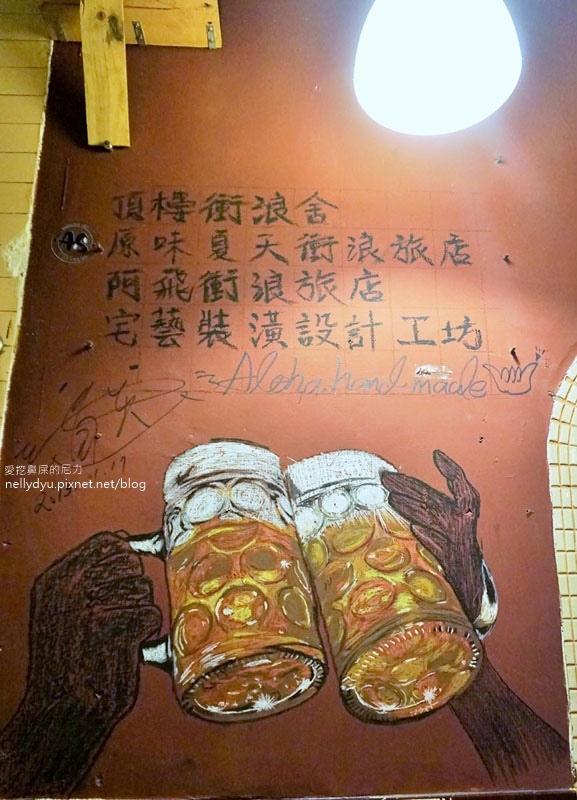 頂樓衝浪舍
原味夏天衝浪旅店
阿飛衝浪旅店
宅藝裝潢設計工坊
Aloha hand made
愛挖鼻屎的尼力
nellydyu.pixnet.net/blog